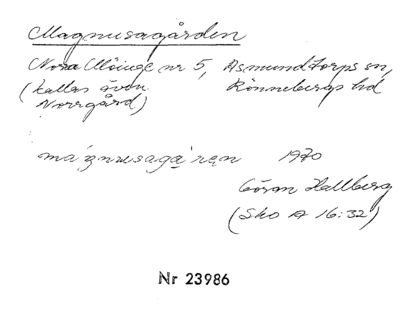 Magnusagården
Norra Möinge nr 5, Asmundtorps sn,
(kallas även Rönnebergs hd
Norrgård)
má'gnusagå'ręn 1970
Göran Hallberg
(Sko A 16:32)
Nr 23986